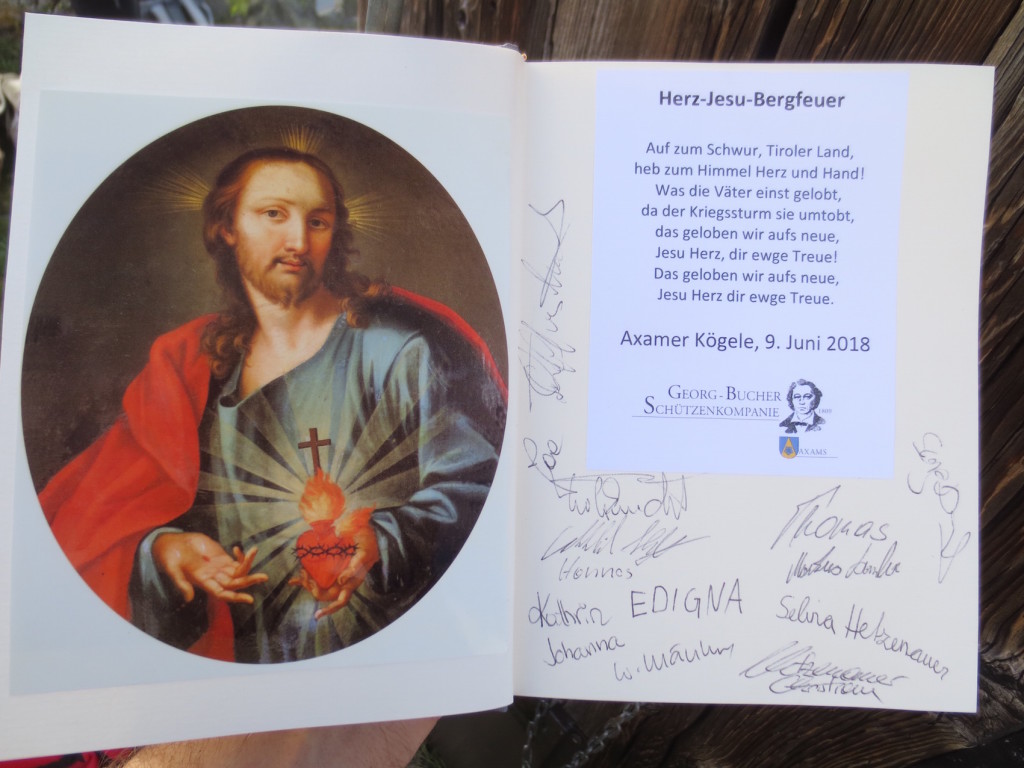 Herz-Jesu-Bergfeuer
Auf zum Schwur, Tiroler Land,
heb zum Himmel Herz und Hand!
Was die Väter einst gelobt,
da der Kriegssturm sie umtobt,
das geloben wir aufs neue,
Jesu Herz, dir ewge Treue!
Das geloben wir aufs neue,
Jesu Herz dir ewge Treue.
Axamer Kögele, 9. Juni 2018
GEORG-BUCHER
SCHÜTZENKOMPANIE
1809
AXAMS
Georg
Thomas
Hannes
Kathrin
EDIGNA
Selina Hetzenauer
Johanna
Hetzenauer
Christian